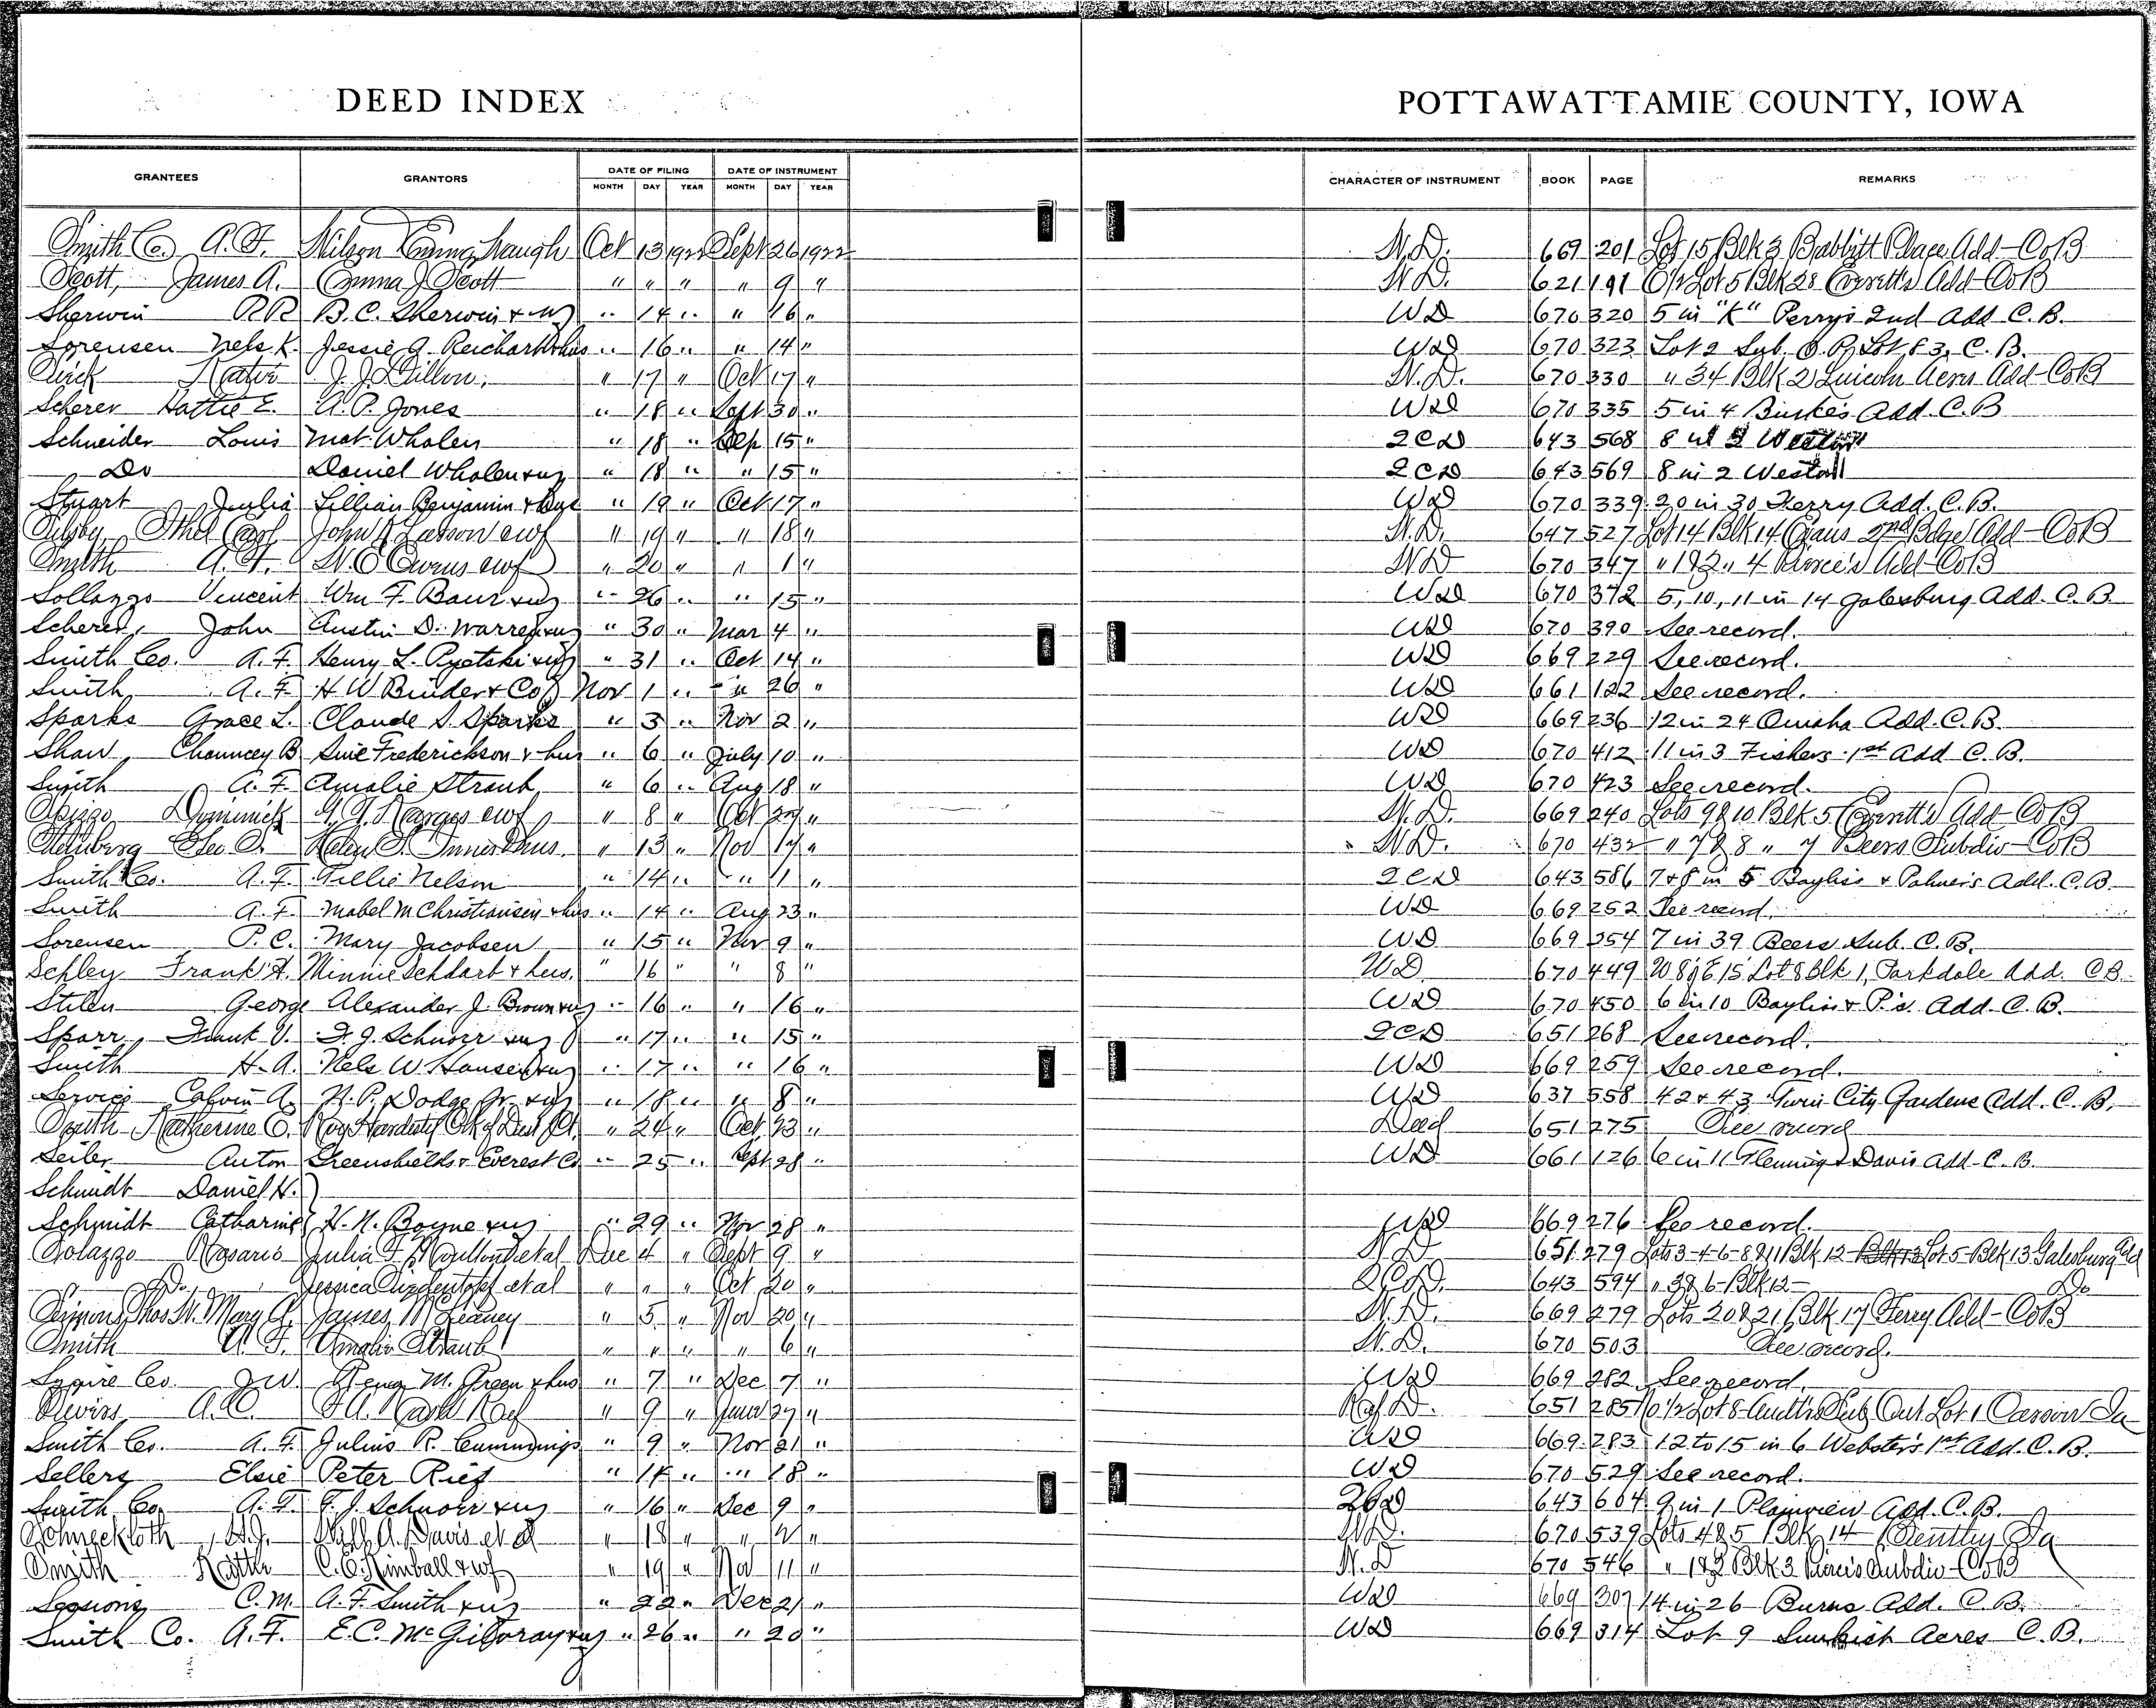 DEED INDEX
POTTAWATTAMIE COUNTY, IOWA
GRANTEES GRANTORS DATE OF FILING DATE OF INSTRUMENT CHARACTER OF INSTRUMENT BOOK PAGE REMARKS
MONTH DAY YEAR MONTH DAY YEAR
Smith Co. A. F. Wilson Emma Oct 13 1922 Sept 26 1922 W.D. 669 201 Lot 15 Blk 3 Babbitt Place Add-Co B
Scott, James A. Emma J. Scott " " " " 9 " W.D. 621 191 Lot 5 Blk 28 Everett's Add-Co B
Sherwin R R B. C. Sherwin & ux " 14 " " 16 " WD 670 320 5 in "K" Perry's 2nd Add C. B.
Sorensen Nels K. Jessie A. Reichart & hus " 16 " " 14 " WD 670 323 Lot 2 Sub. O. P. Lot 83, C. B.
J. J. Dillon. " 17 " Oct 17 " W.D. 670 330 " 34 Blk 2 Lincoln Acres Add-Co B
Scherer Hattie E. A. P. Jones " 18 " Sept 30 " WD 670 335 5 in 4 Burke's Add. C. B
Schneider Louis Mat Whalen " 18 " Sep 15 " QCD 643 568 8 in 2 Weston
Do Daniel Whalen & ux " 18 " " 15 " QCD 643 569 8 in 2 Weston
Stuart Julia Lillian Benjamin & " 19 " Oct 17 " WD 670 339 20 in 30 Ferry Add. C. B.
Ethel Carol John R Larson & wf " 19 " " 18 " W.D. 647 527 Lot 14 Blk 14 Evans 2nd Bdge Add-Co B
Smith A. F. W. E. Owens & wf " 20 " " 1 " WD 670 347 " 1 & 2 " 4 Pierce's Add-Co B
Sollazzo Vincent Wm F. Baur & ux " 26 " " 15 " WD 670 372 5, 10, 11 in 14 Galesburg Add. C. B
Scherer, John Austin D. Warren & ux " 30 " Mar 4 " WD 670 390 See record.
Smith Co. A. F. Henry L. & ux " 31 " Oct 14 " WD 669 229 See record.
Smith A. F. H W Binder & Co Nov 1 " " 26 " WD 661 122 See record.
Sparks Grace L. Claude S. Sparks " 3 " Nov 2 " WD 669 236 12 in 24 Omaha Add. C. B.
Shaw Chauncey B Sine Frederickson & hus " 6 " July 10 " WD 670 412 11 in 3 Fishers 1st Add C. B.
Smith A. F. Amalie Straub " 6 " Aug 18 " WD 670 423 See record.
Dominick & wf " 8 " Oct 27 " W.D. 669 240 Lots 9 & 10 Blk 5 Everett's Add-Co B
Geo Helen & hus. " 13 " Nov " W.D. 670 432 " 7 & 8 " 7 Beers Subdiv-Co B
Smith Co. A. F. Tillie Nelson " 14 " " 1 " QCD 643 586 7 & 8 in 5 Bayliss & Palmer's Add. C. B.
Smith A. F. Mabel M Christiansen & hus " 14 " Aug 23 " WD 669 252 See record.
Sorensen P. C. Mary Jacobsen " 15 " Nov 9 " WD 669 254 7 in 39 Beers Sub. C. B.
Schley Frank H. Minnie Schdart & hus. " 16 " " 8 " WD 670 449 W 8 of E 15 Lot 8 Blk 1, Parkdale Add. C B
Stilen George Alexander J. Brown & ux " 16 " " 16 " WD 670 450 6 in 10 Bayliss & P.'s. Add. C. B.
Sparr, Frank V. F. J. Schnorr & ux " 17 " " 15 " QCD 651 268 See record.
Smith H. A. Nels W. Hansen & ux " 17 " " 16 " WD 669 259 See record.
Service Calvin A. N. P. Dodge Jr. & ux " 18 " " 8 " WD 637 558 42 & 43 Twin City Gardens Add. C. B.
Smith Katherine Clk of Dist Ct. " 24 " Oct 23 " Deed 651 275 See record
Seiler Anton Greenshields & Everest Co " 25 " Sept 28 " WD 661 126 6 in 11 Fleming & Davis Add-C. B.
Schmidt Daniel H.
Schmidt Catharine H. N. Boyne & ux " 29 " Nov 28 " WD 669 276 See record.
Solazzo Rosario Julia F. Moulton et al Dec 4 " Sept 9 " W.D. 651 279 Lots 3-4-6-8 & 11 Blk 12 Lot 5-Blk 13 Galesburg Add
Do. Jessica et al " " " Oct 20 " Q.C.D. 643 594 " 3 & 6-Blk 12- Do
Simons, Thos W. Mary A. James M " 5 " Nov 20 " W.D. 669 279 Lots 20 & 21 Blk 17 Ferry Add-Co B
Smith A. F. Amalie Straub " " " " 6 " W.D. 670 503 See record.
Squire Co. J W. Rena M. Green & hus " 7 " Dec 7 " WD 669 282 See record.
A. C. F. A. " 9 " June 27 " D. 651 285 Lot 8 Sub Out Lot 1 Carson Ia
Smith Co. A. F. Julius R. Cummings " 9 " Nov 21 " WD 669 283 12 to 15 in 6 Webster's 1st Add. C. B.
Sellers Elsie Peter Rief " 14 " " 18 " WD 670 529 See record.
Smith Co A. F. F. J. Schnorr & ux " 16 " Dec 9 " QCD 643 604 9 in 1 Plainview Add. C. B.
Schneckloth H. J. Davis et al " 18 " " " W.D. 670 539 Lots 4 & 5 Blk 14 Bentley Ia
Smith Kathr C. E. Kimball & wf " 19 " Nov 11 " W.D 670 546 " 1 & 2 Blk 3 Pierce's Subdiv-Co B
Sessions C. M. A. F. Smith & ux " 22 " Dec 21 " WD 669 307 14 in 26 Burns Add. C. B.
Smith Co. A. F. E. C. McGilvray & ux " 26 " " 20 " WD 669 314 Lot 9 Sunkist Acres C. B.